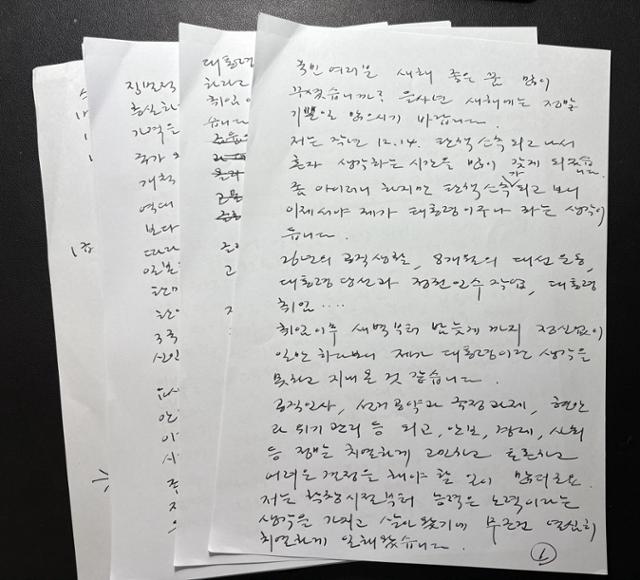 대통령
하라고
취임 이
습니다
집권적
충실하
가격을
국가 
개척
역대
보다
국민 여러분, 새해 좋은 꿈 많이
꾸셨습니까? 을사년 새해에는 정말
기쁜 일 많으시기 바랍니다.
저는 작년 12.14. 탄핵소추 되고 나서
혼자 생각하는 시간을 많이 갖게 되었습니다.
좀 아이러니 하지만 탄핵소추가 되고 보니
이제서야 제가 대통령이구나 하는 생각이
듭니다.
26년의 공직생활, 8개월의 대선 운동,
대통령 당선과 정권 인수 작업, 대통령
취임....
취임이후 새벽부터 밤늦게 까지 정신없이
일만 하다보니 제가 대통령이란 생각을
못하고 지내 온 것 같습니다.
공직인사, 선거공약과 국정과제, 현안
과 위기 관리 등 외교, 안보, 경제, 사회
등 정말 치열하게 고민하고 토론하고
어려운 결정을 해야 할 일이 많더군요.
저는 학창시절부터 능력은 노력이라는
생각을 가지고 살아 왔기에 무조건 열심히
치열하게 일해 왔습니다.
1